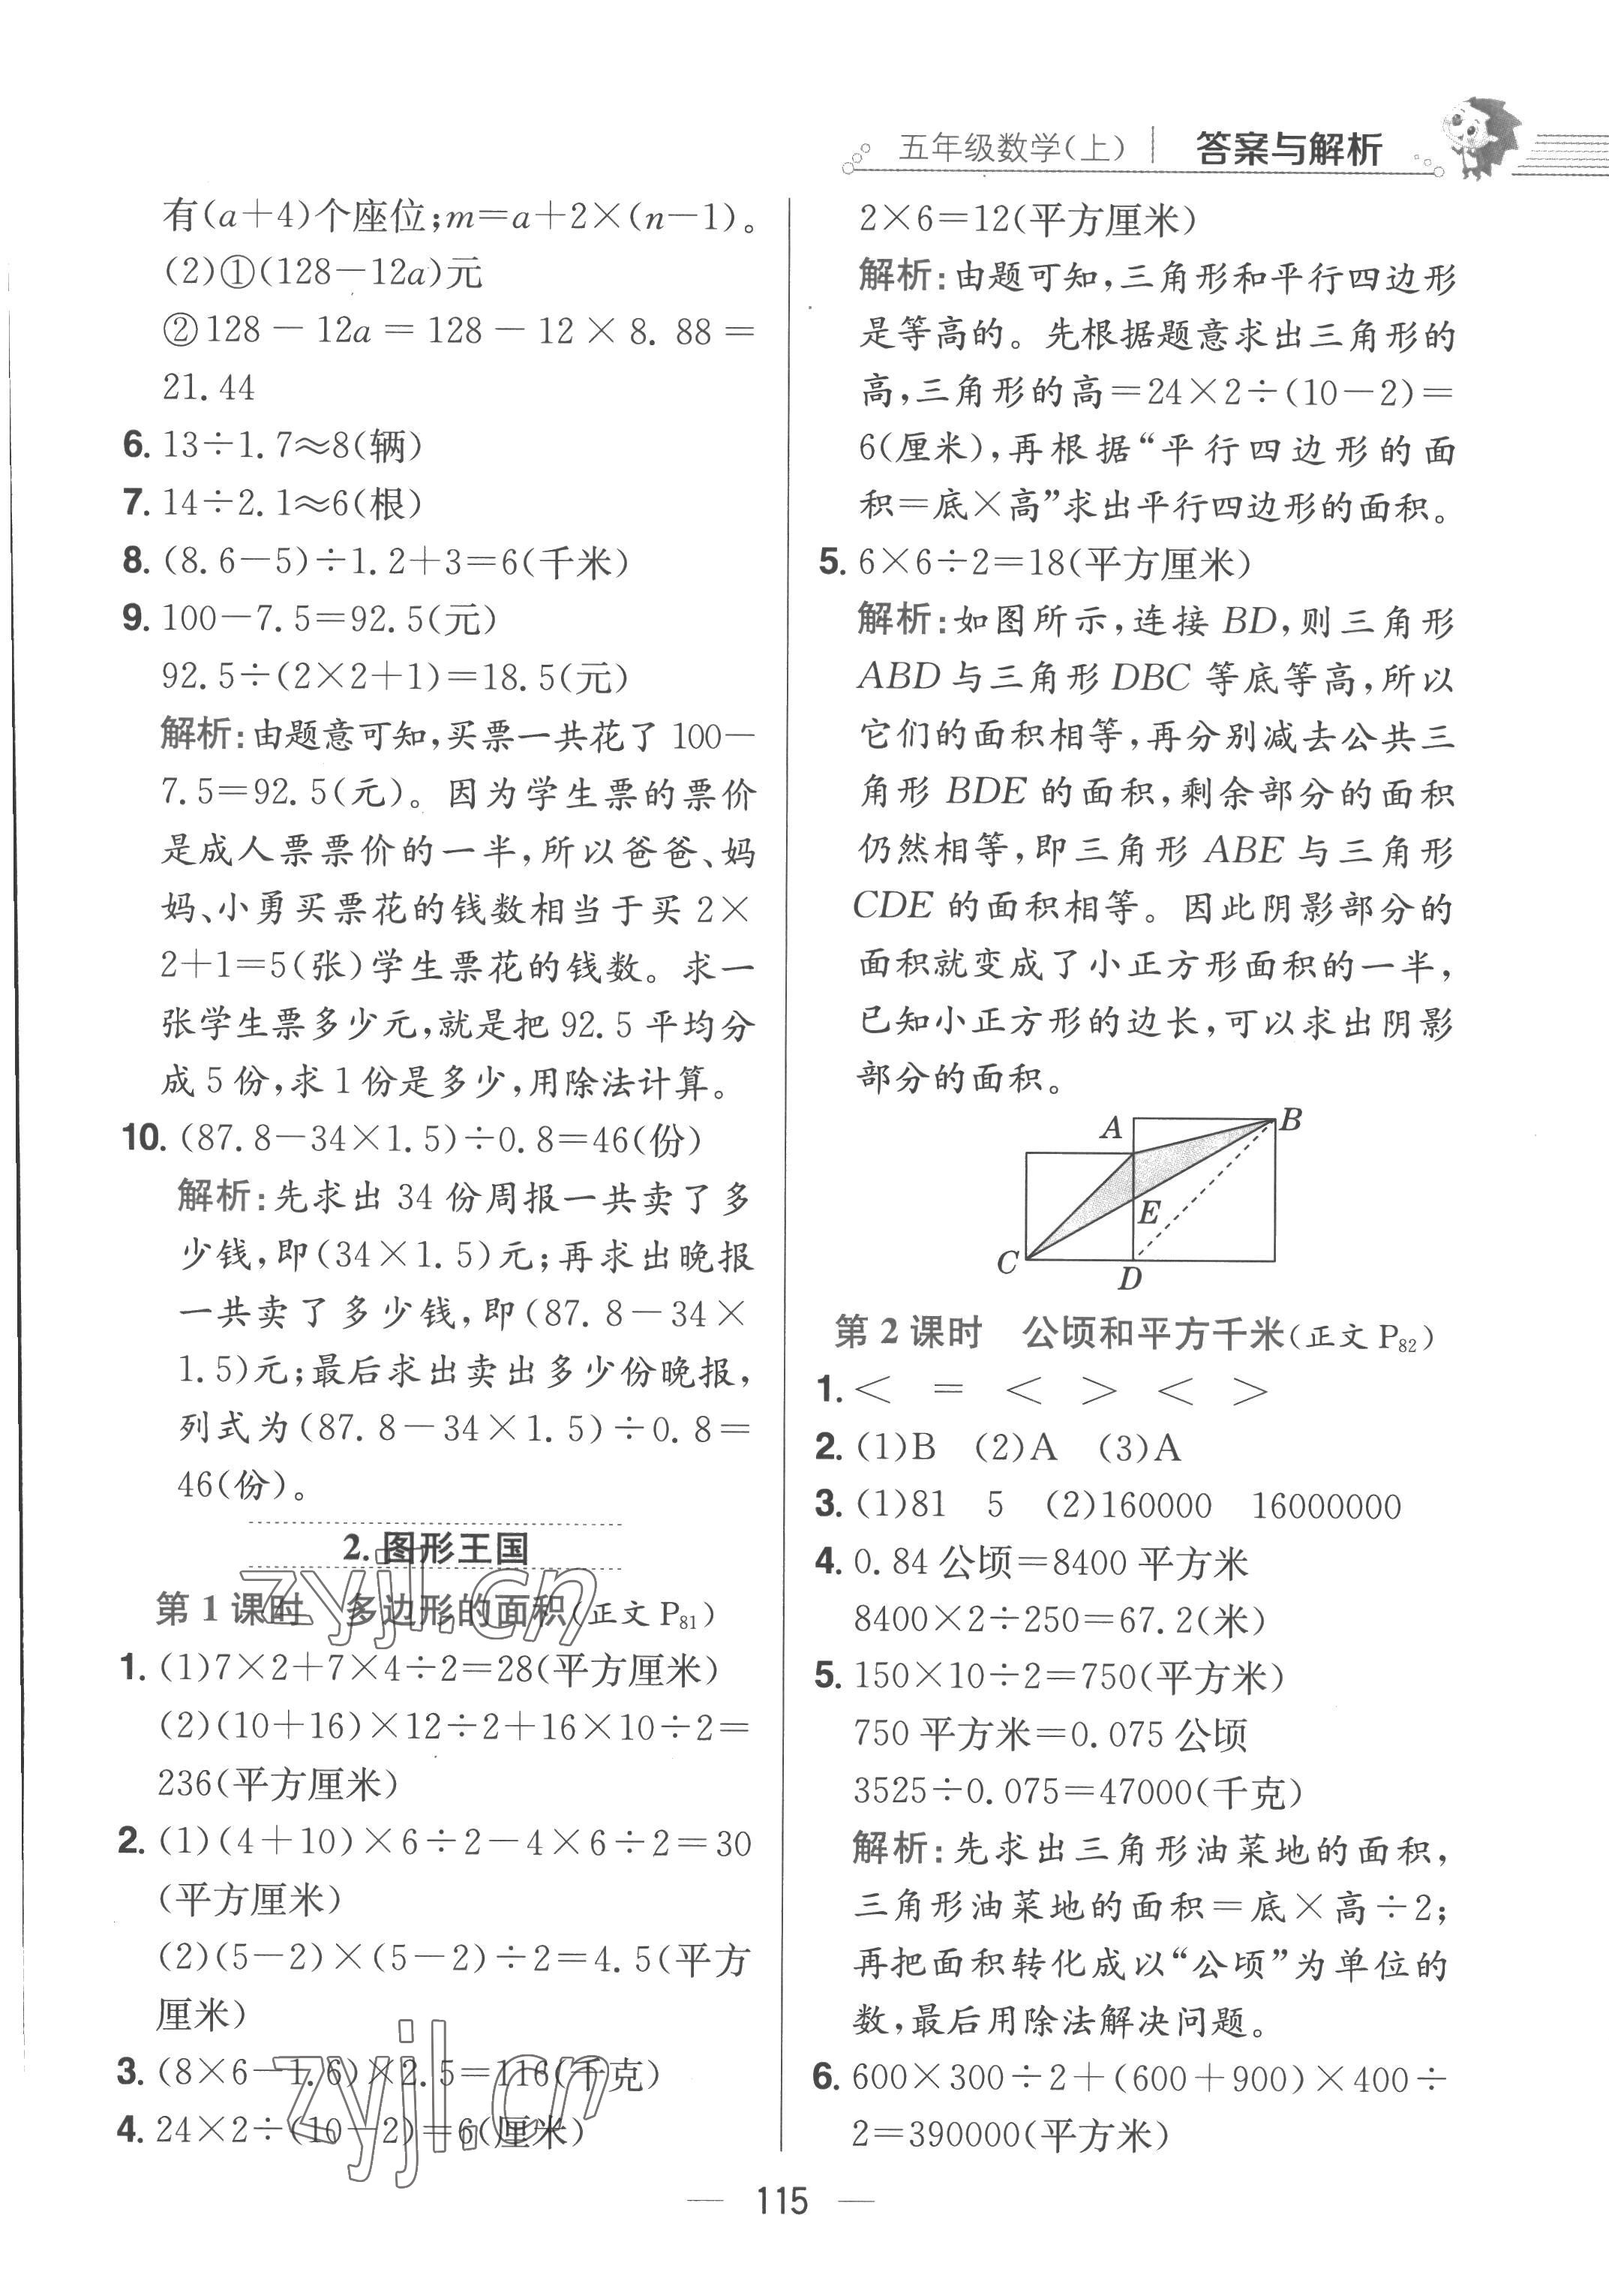 五年级数学(上) 答案与解析
有(a+4)个座位;m=a+2×(n-1)。
(2)①(128-12a)元
②128-12a=128-12×8.88=
21.44
6. 13÷1.7≈8(辆)
7. 14÷2.1≈6(根)
8. (8.6-5)÷1.2+3=6(千米)
9. 100-7.5=92.5(元)
92.5÷(2×2+1)=18.5(元)
解析:由题意可知,买票一共花了 100-
7.5=92.5(元)。因为学生票的票价
是成人票票价的一半,所以爸爸、妈
妈、小勇买票花的钱数相当于买 2×
2+1=5(张)学生票花的钱数。求一
张学生票多少元,就是把 92.5 平均分
成 5 份,求 1 份是多少,用除法计算。
10. (87.8-34×1.5)÷0.8=46(份)
解析:先求出 34 份周报一共卖了多
少钱,即(34×1.5)元;再求出晚报
一共卖了多少钱,即(87.8-34×
1.5)元;最后求出卖出多少份晚报,
列式为(87.8-34×1.5)÷0.8=
46(份)。
2.图形王国
第 1 课时 多边形的面积(正文 P81)
zyjl.cn
1. (1)7×2+7×4÷2=28(平方厘米)
(2)(10+16)×12÷2+16×10÷2=
236(平方厘米)
2. (1)(4+10)×6÷2-4×6÷2=30
(平方厘米)
(2)(5-2)×(5-2)÷2=4.5(平方
厘米)
3. (8×6-1.6)×2.5=116(千克)
zyjl.cn
4. 24×2÷(10-2)=6(厘米)
2×6=12(平方厘米)
解析:由题可知,三角形和平行四边形
是等高的。先根据题意求出三角形的
高,三角形的高=24×2÷(10-2)=
6(厘米),再根据“平行四边形的面
积=底×高”求出平行四边形的面积。
5. 6×6÷2=18(平方厘米)
解析:如图所示,连接 BD,则三角形
ABD 与三角形 DBC 等底等高,所以
它们的面积相等,再分别减去公共三
角形 BDE 的面积,剩余部分的面积
仍然相等,即三角形 ABE 与三角形
CDE 的面积相等。因此阴影部分的
面积就变成了小正方形面积的一半,
已知小正方形的边长,可以求出阴影
部分的面积。
A B
E
C
D
第 2 课时 公顷和平方千米(正文 P82)
1. < = < > < >
2. (1)B (2)A (3)A
3. (1)81 5 (2)160000 16000000
4. 0.84 公顷=8400 平方米
8400×2÷250=67.2(米)
5. 150×10÷2=750(平方米)
750 平方米=0.075 公顷
3525÷0.075=47000(千克)
解析:先求出三角形油菜地的面积,
三角形油菜地的面积=底×高÷2;
再把面积转化成以“公顷”为单位的
数,最后用除法解决问题。
6. 600×300÷2+(600+900)×400÷
2=390000(平方米)
— 115 —